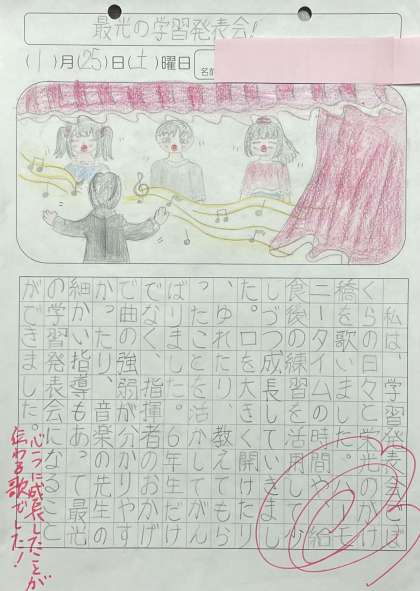 最光の学習発表会！
(11)月(25)日(土)曜日
名前
私は、学習発表会でぼ
くらの日々と栄光のかけ
橋を歌いました。ハーモ
ニータイムの時間や、給
食後の練習を活用して少
しづつ成長していきまし
た。口を大きく開けたり
、ゆれたり、教えてもら
ったことを活かしてがん
ばりました。6年生だけ
でなく、指揮者のおかげ
で曲の強弱が分かりやす
かったり、音楽の先生の
細かい指導もあって最光
の学習発表会になること
ができました。
心一つに成長したことが
伝わる歌でした！